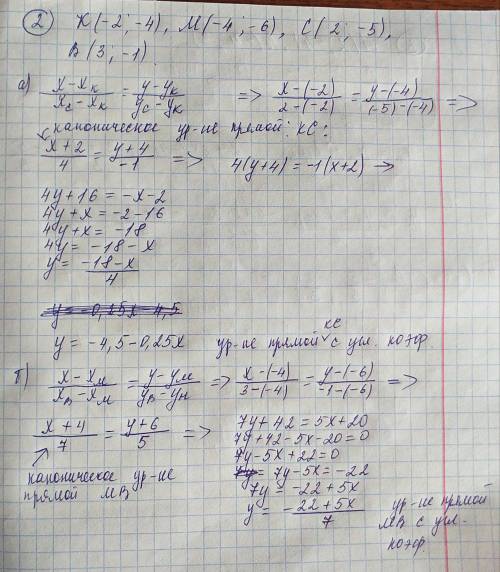 2) К(-2; -4), М(-4; -6), С(2; -5),
В(3; -1)
а) (x-xк)/(xс-xк) = (y-yк)/(yс-yк) => (x-(-2))/(2-(-2)) = (y-(-4))/((-5)-(-4)) =>
каноническое ур-ние прямой: КС:
(x+2)/4 = (y+4)/-1 => 4(y+4) = -1(x+2) →
4y+16 = -x-2
4y+x = -2-16
4y+x = -18
4y = -18-x
y = (-18-x)/4
y = -0,25x-4,5
y = -4,5-0,25x ур-не прямой КС с угл. коэф.
б) (x-xм)/(xв-xм) = (y-yм)/(yв-yн) => (x-(-4))/(3-(-4)) = (y-(-6))/(-1-(-6)) =>
(x+4)/7 = (y+6)/5 =>
каноническое ур-не
прямой МВ
7y+42 = 5x+20
7y+42-5x-20=0
7y-5x+22=0
7y-5x=-22
7y = -22+5x
y = (-22+5x)/7
ур-не прямой
МВ с угл.
коэф.